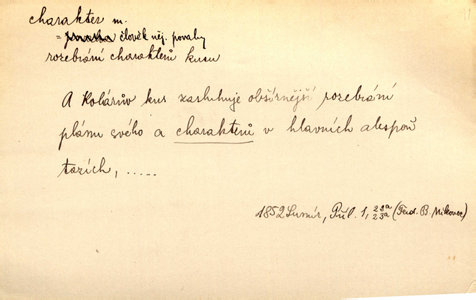 charakter m.
= člověk něj. povahy
rozebrání charakterů kusu
A Kolárův kus zasluhuje obšírnější rozebrání
plánu svého a charakterů v hlavních alespoň
tazích, .....
1852 Lumír, Půl. 1, 22a 23a (Ferd. B. Mikovec)